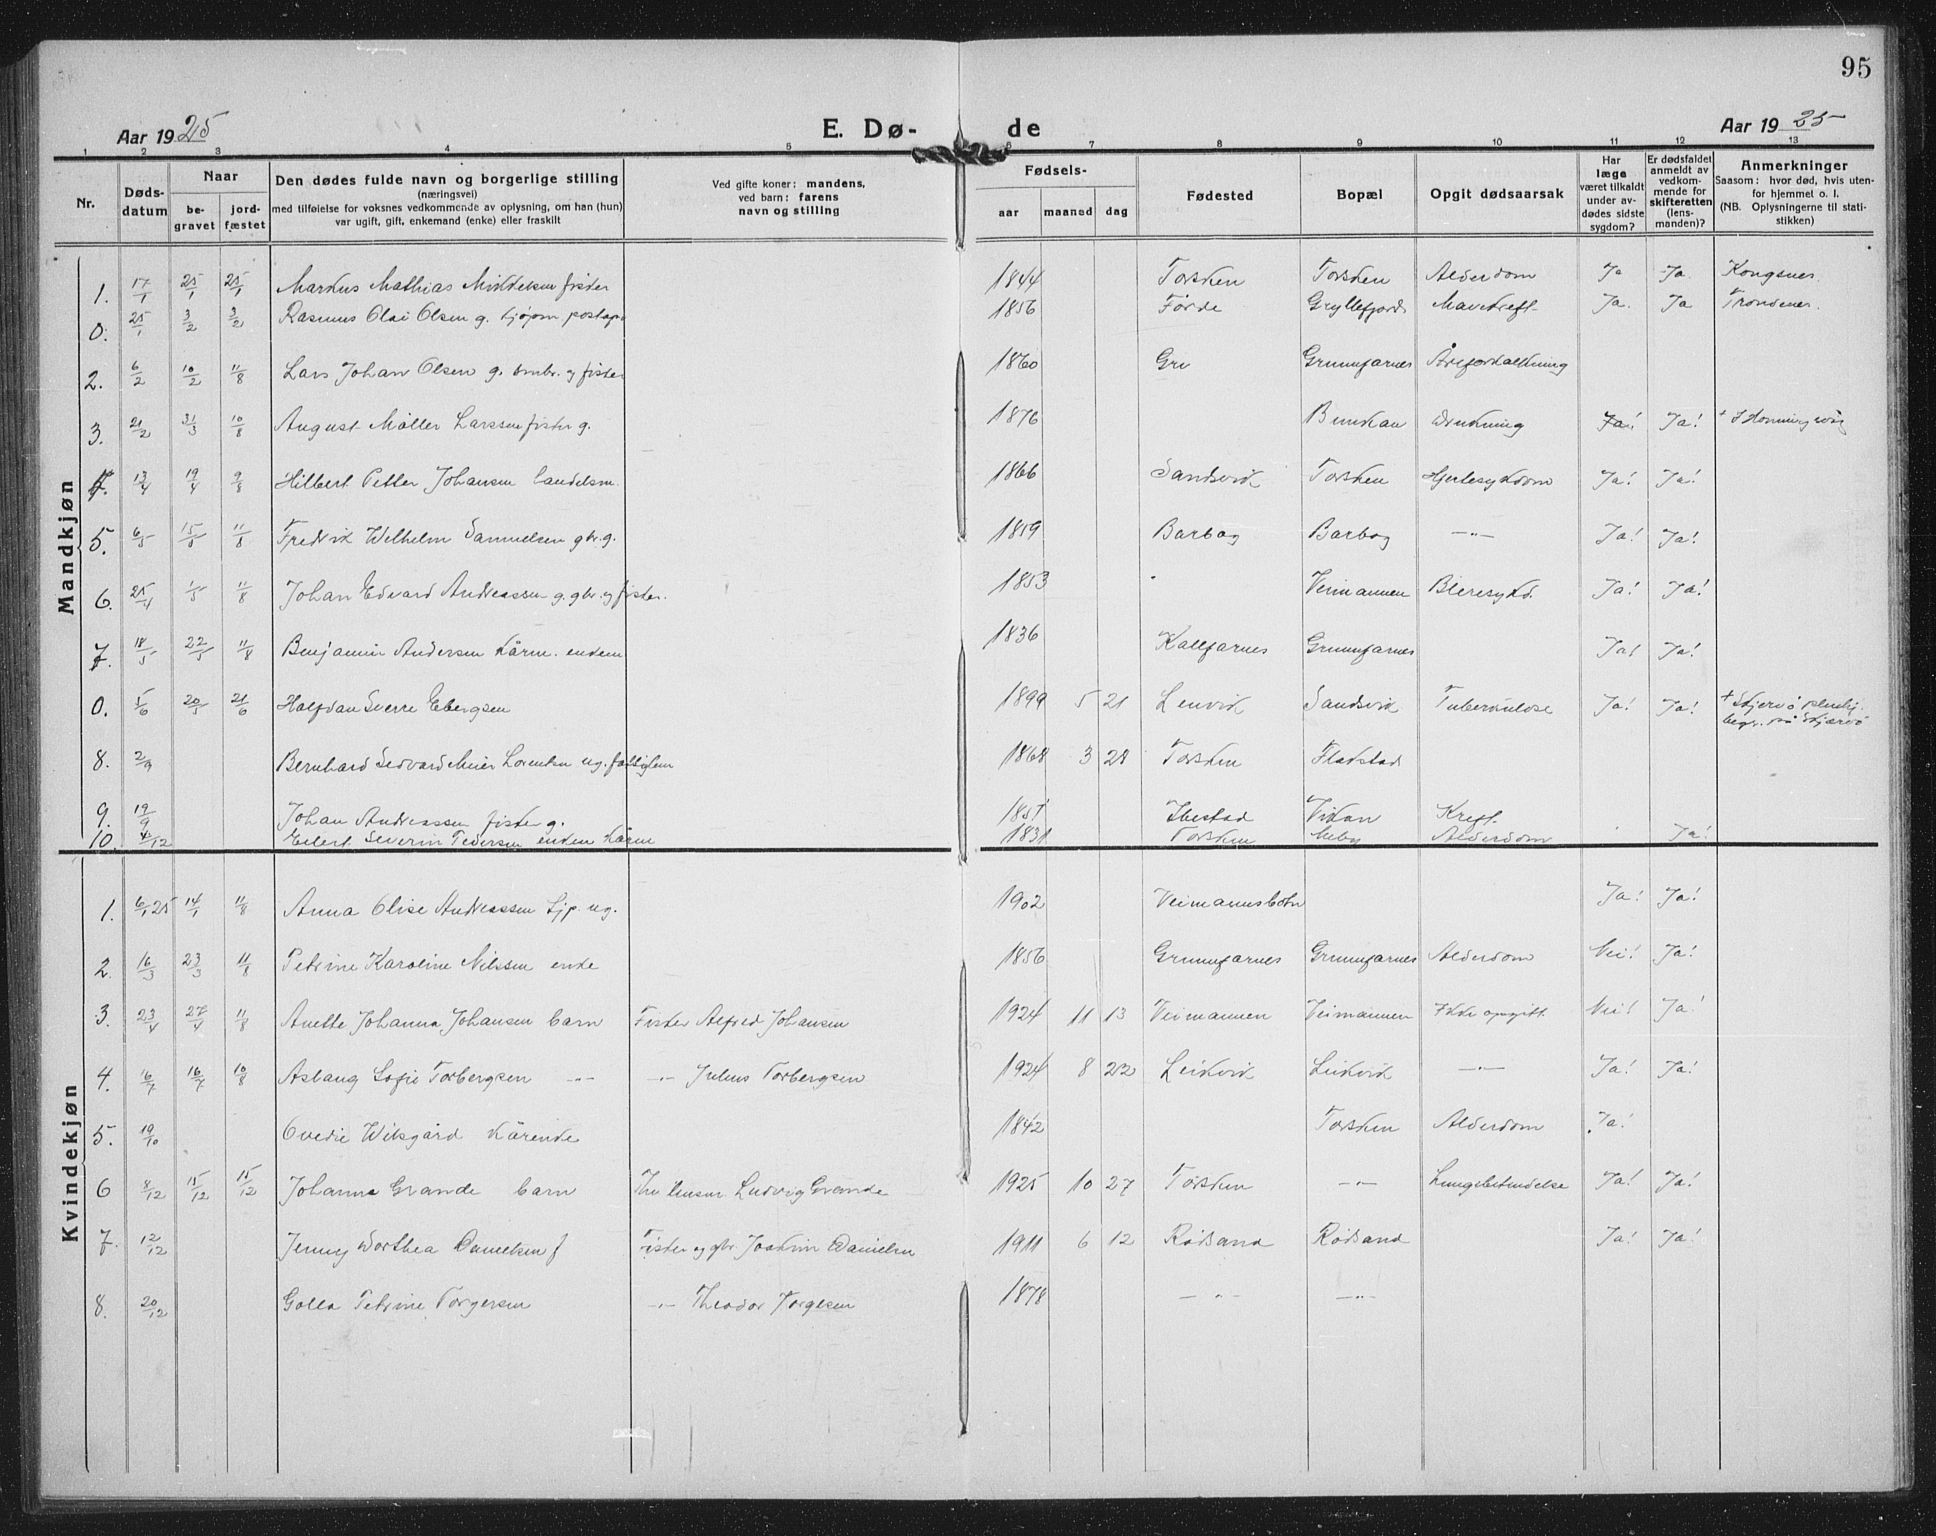 95
Aar 1925 E. Dø- de Aar 1925
1 2 3 4 5 6 7 8 9 10 11 12 13
Nr.
Døds-
datum
Naar
be-
gravet
jord-
fæstet
Den dødes fulde navn og borgerlige stilling
(næringsvei)
med tilføielse for voksnes vedkommende av oplysning, om han (hun)
var ugift, gift, enkemand (enke) eller fraskilt
Ved gifte koner: mandens,
ved barn: farens
navn og stilling
Fødsels-
aar maaned dag
Fødested
Bopæl
Opgit dødsaarsak
Har
læge
været tilkaldt
under av-
dødes sidste
sygdom?
Er dødsfaldet
anmeldt av
vedkom-
mende for
skifteretten
(lens-
manden)?
Anmerkninger
Saasom: hvor død, hvis uten-
for hjemmet o. l.
(NB. Oplysningerne til stati-
stikken)
Mandkjøn
1. 17/1 25/1 25/1 Markus Mathias Mikkelsen fisker 1844 Torsken Torsken Alderdom Ja Ja. Kongsnes
0. 25/1 3/2 3/2 Rasmus Olai Olsen g. 1856 Førde Gryllefjord Mavekreft. Ja. Ja Trondenes.
2. 6/2 10/2 11/8 Lars Johan Olsen g. gmbr. og fisker 1860 Gru Grunnfarnes Åreforkalkning
3. 21/2 31/3 10/8 August Møller Larssen fisker g. 1876 Bunkan Drukning Ja! Ja! + i Honningsvåg
4. 13/4 19/4 9/8 Hilbert Petter Johansen handelsm. 1866 Sandsvik Torsken Hjertesykdom Ja! Ja!
5. 6/5 15/5 11/8 Fredrik Wilhelm Samuelsen gbr. g. 1859 Barbog Barbog —"— Ja! Ja!
6. 25/4 1/5 11/8 Johan Edvard Andreassen g. gbr. og fisker. 1853 " Veimannen Bleresykd. Ja! Ja!
7. 18/5 22/5 11/8 Benjamin Andersen kårm. enkem 1836 Kalfarnes Grunnfarnes Ja! Ja!
0. 5/6 20/5 21/6 Halfdan Sverre Ebergsen 1899 5 21 Lenvik Sandsvik Tuberkulose Ja! Ja! + Skjervø pleiehj.
begr. på Skjærvø
8. 2/9 Bernhard Sedvard Meier Lorentsen ug. fattiglem 1868 3 28 Torsken Flakstad
9. 19/9 Johan Andreassen fisker g. 1851 Ibestad Vikan Kreft.
10. 4/12 Eilert Severin Pedersen enkem kårm 1831 Torsken Meby Alderdom Ja!
Kvindekjøn
1. 6/1 25 14/1 11/8 Anna Olise Andreassen tjp. ug. 1902 Veimannsbotn Ja! Ja!
2. 16/3 23/3 11/8 Petrine Karoline Nilssen enke 1856 Grunnfarnes Grunnfarnes Alderdom Nei! Ja!
3. 23/4 27/4 11/8 Anette Johanna Johansen barn Fisker Alfred Johansen 1924 11 13 Veimannen Veimannen Ikke opgitt. Nei! Ja!
4. 16/7 16/7 10/8 Aslaug Sofie Torbergsen —"— —"— Julius Torbergsen 1924 8 22 Leikvik Leikvik —"— Ja! Ja!
5. 19/10 Ovedie Wiksgård kårenke 1842 Torsken Alderdom Ja!
6 8/12 15/12 15/12 Johanna Grande barn Ludvig Grande 1925 10 27 Torsken —"— Lungebetendelse Ja! Ja!
7. 12/12 Jenny Dorthea Danielsen f Fisker og gbr. Joakim Danielsen 1911 6 12 Rødsand Rødsand Ja! Ja!
8. 20/12 Golla Petrine Torgersen —"— Theodor Torgersen 1878 —"— —"—